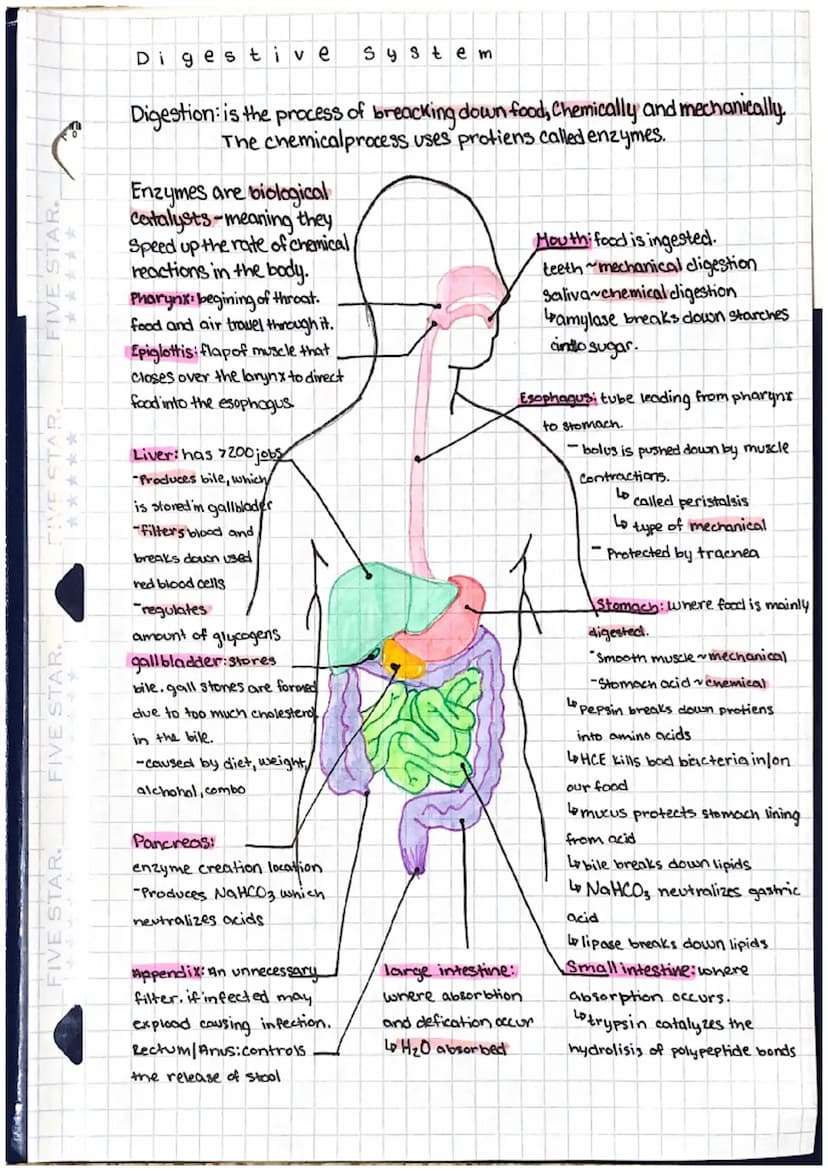 Digestive System
Digestion: is the process of breacking down food, Chemically and mechanically.
The chemical process uses protiens called enzymes.
Enzymes are biological
catalysts - meaning they
speed up the rate of chemical
reactions in the body.
Pharynx: begining of throat.
food and air travel through it.
Epiglottis: flap of muscle that
closes over the larynx to direct
food into the esophagus
Liver: has >200 jobs
-Produces bile, which
is stored in gallbladder
-filters blood and
breaks down used
red blood cells
-regulates
amount of glycogens
gallbladder: stores
bile. gall stones are formed
due to too much cholesterol
in the bile.
-caused by diet, weight,
alchohol, combo
Pancreas:
enzyme creation location
-Produces NaHCO3 which
neutralizes acids
Appendix: An unnecessary
filter. if infected may
expload causing infection.
Rectum/Anus: controls
the release of stool
Mouth: food is ingested.
teeth ~ mechanical digestion
saliva ~ chemical digestion
↳ amylase breaks down starches
into sugar.
Esophagus: tube leading from pharynx
to stomach.
- bolus is pushed down by muscle
contractions.
↳ called peristalsis
↳ type of mechanical
- Protected by tracnea
Stomach: where food is mainly
digested.
-Smooth muscle ~ mechanical
-Stomach acid ~ chemical
↳ Pepsin breaks down protiens
into amino acids
↳ HCE kills bad bacteria in/on
our food
↳ mucus protects stomach lining
from acid
↳ bile breaks down lipids
↳ NaHCO3 neutralizes gastric
acid
↳ lipase breaks down lipids
large intestine:
where absorbtion
and defication occur
↳ H2O absorbed
Small intestine: where
absorption occurs.
↳ trypsin catalyzes the
hydrolisis of polypeptide bonds
FIVE STAR.
FIVE STAR.
FIVE STAR.
FIVE STAR.